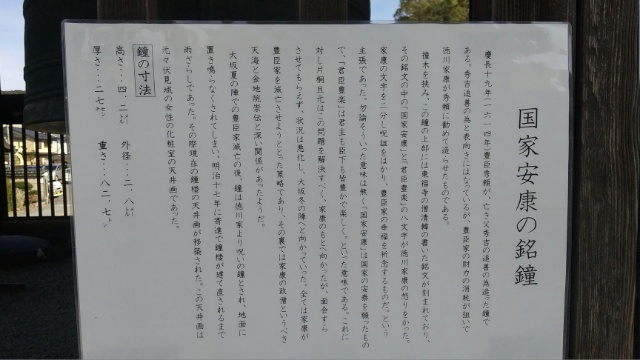 国家安康の銘鐘
慶長十九年(一六一四年)豊臣秀頼が、亡き父秀吉の追善の為造った鐘で
ある。秀吉追善の為と表向きにはなっているが、豊臣家の財力の消耗が狙いで
徳川家康が秀頼に勧めて造らせたものである。
撞木を挟み、この鐘の上部には東福寺の僧清韓の書いた銘文が刻まれており、
その銘文の中の「国家安康」と「君臣豊楽」の八文字が徳川家康の怒りをかった。
家康の文字を二分し呪詛をはかり、豊臣家の幸福を祈念するものだ。という
主張であった。勿論そういった意味は無く「国家安康」は国家の安泰を願ったもの
で、「君臣豊楽」は君主も臣下も皆豊かで楽しく、といった意味である。これに
対し片桐且元はこの問題を解決すべく、家康のもとへ向かったが、面会すら
させてもらえず、状況は悪化し、大坂冬の陣へと向かっていった。全ては家康が
豊臣家を滅亡させようととった策略であり、その裏では家康の政僧というべき
天海と金地院崇伝と深い関係があったようだ。
大坂夏の陣での豊臣家滅亡の後、鐘は徳川家より呪いの鐘とされ、地面に
置き鳴らなくされてしまい、明治十七年に寄進で鐘楼が建て直されるまで
雨ざらしであった。その際現在の鐘楼の天井画が移築された。この天井画は
元々伏見城の女性の化粧室の天井画であった。
鐘の寸法
高さ・・・四.二㍍　外径・・・二.八㍍
厚さ・・・二七㌢　重さ・・・八二.七㌧